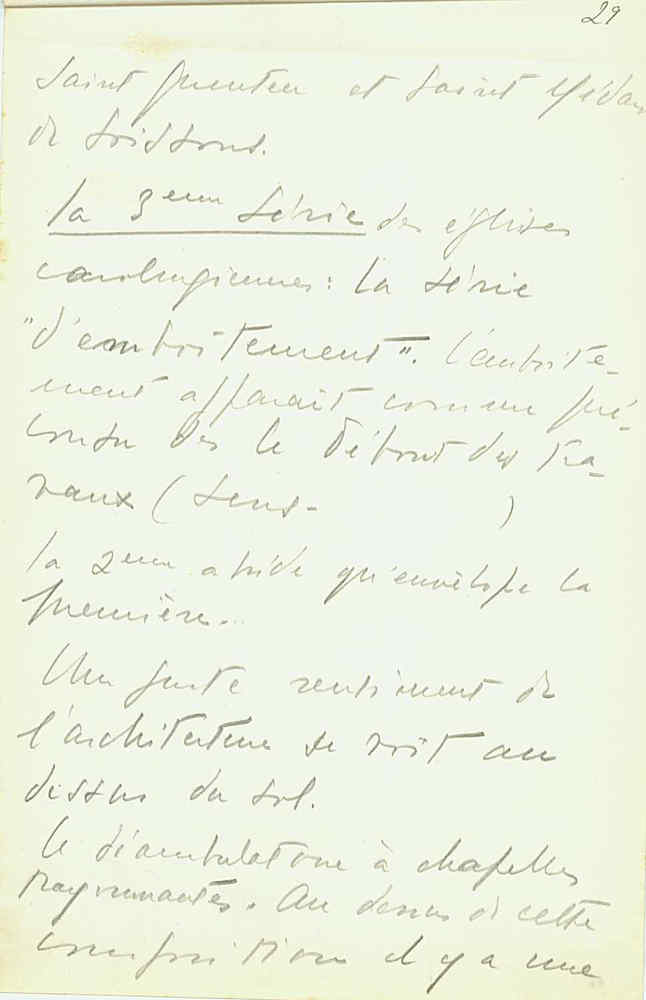 29
Saint Quentin et Saint Médard
de Soissons.
la 3eme Série des églises
carolingiennes: la série
"d'emboîtement". l'emboîte-
ment apparaît comme pré-
conçu dès le début des tra-
vaux (Sens- )
la 2eme abside qu'envelope la
première.
Un juste sentiment de
l'architecture se voit au
dessus du sol.
le déambulatoire à chapelles
rayonnantes. Au dessus de cette
composition il y a une